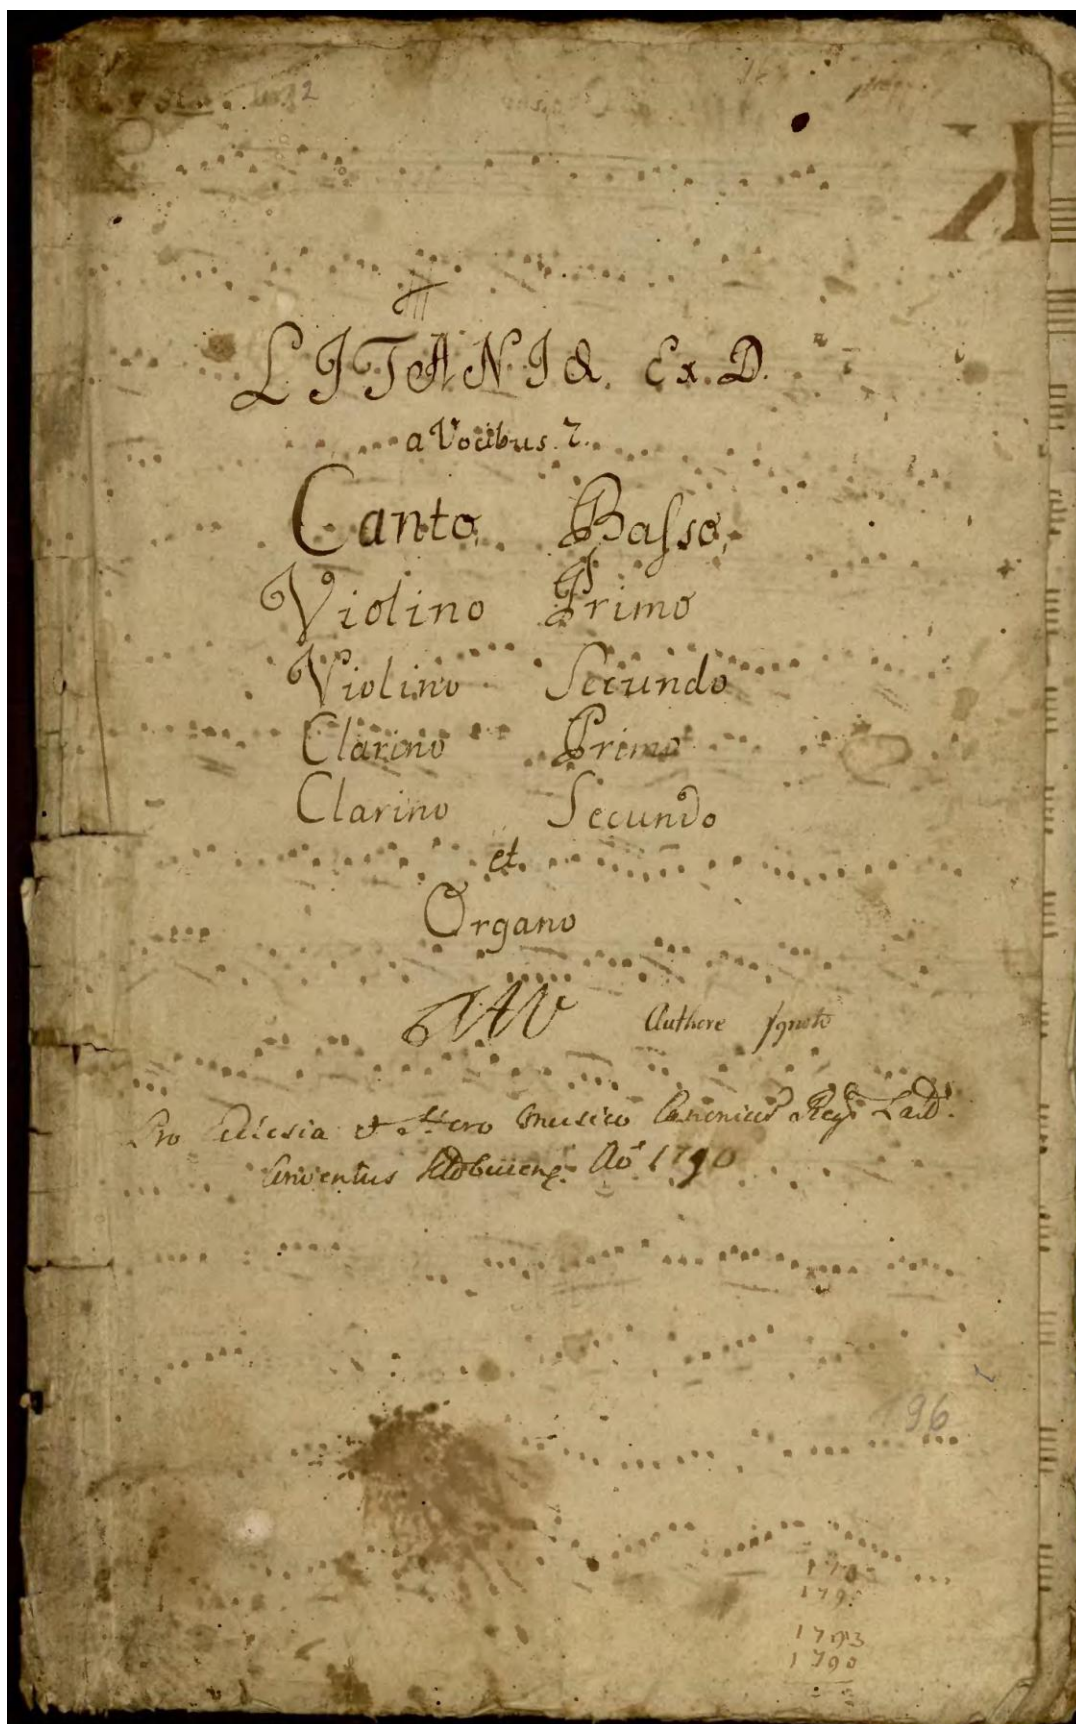 K
LITANIÆ. Ex. D.
a Vocibus. 7.
Canto. Basso,
Violino Primo
Violino Secundo
Clarino Primo
Clarino Secundo
et
Organo
Authore Ignoto
Pro Ecclesia et Choro Musico Canonicor Reg
Conventus Aō 1790
96
1790
1793
1790